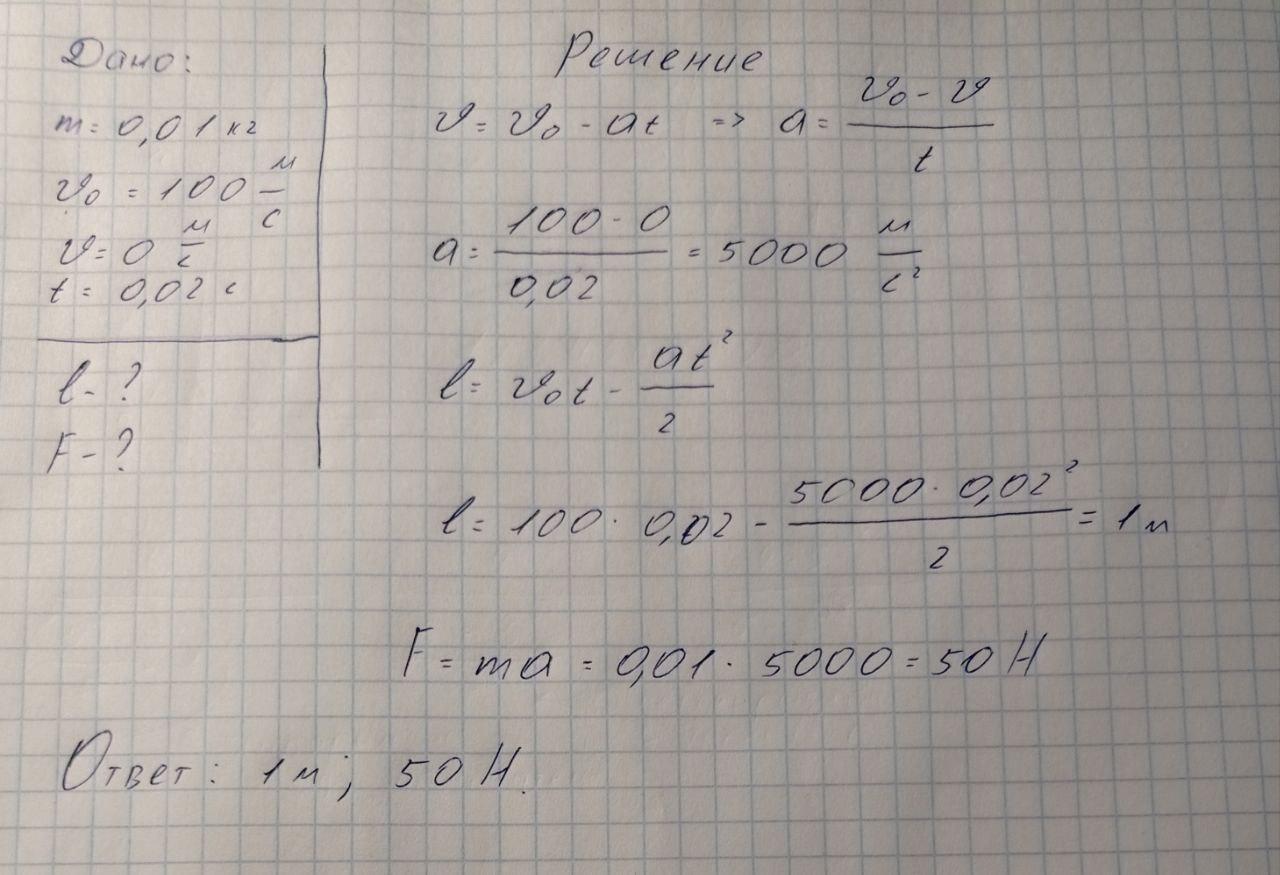 Дано:
m = 0,01 кг
v₀ = 100 м/с
v = 0 м/с
t = 0,02 с
l - ?
F - ?
Решение
v = v₀ - at => a = (v₀ - v)/t
a = (100 - 0)/0,02 = 5000 м/с²
l = v₀t - at²/2
l = 100 · 0,02 - (5000 · 0,02²)/2 = 1 м
F = ma = 0,01 · 5000 = 50 Н
Ответ: 1 м; 50 Н.